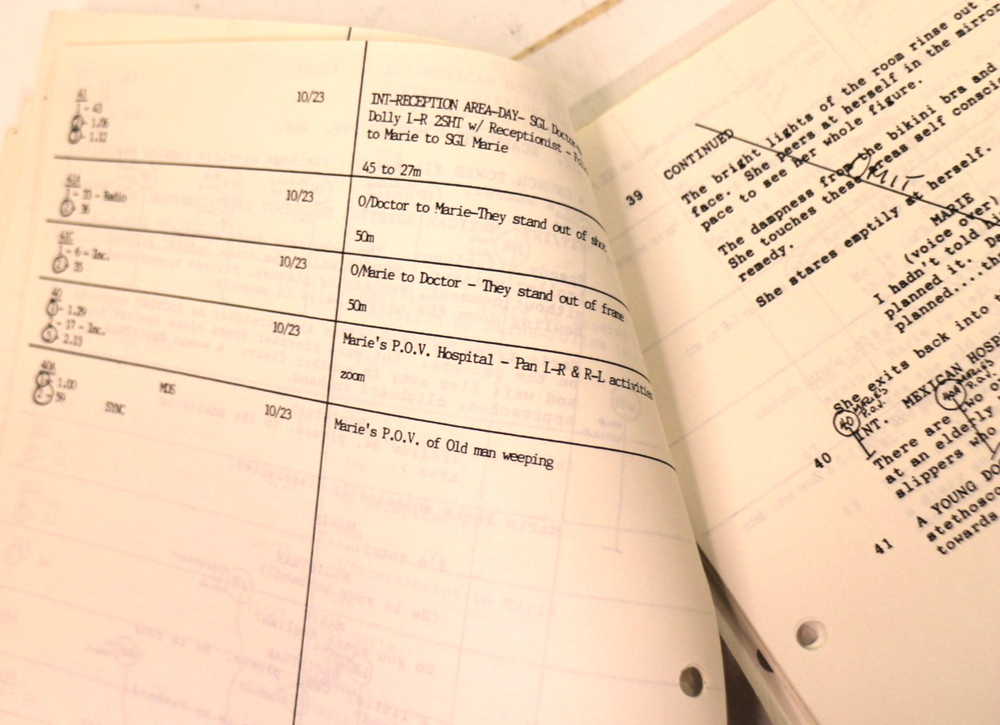 41
1 - 43
- 1.06
- 1.12
10/23
INT-RECEPTION AREA-DAY- SGL Doctor
Dolly I-R 2SHT w/ Receptionist -
to Marie to SGL Marie
45 to 27m
41A
1 - 20 - Radio
2 - 36
10/23
O/Doctor to Marie-They stand out of shot
50m
41C
1 - 6 - Inc.
2 - 35
10/23
O/Marie to Doctor - They stand out of frame
50m
40
- 1.29
- 17 - Inc.
- 2.13
10/23
Marie's P.O.V. Hospital - Pan I-R & R-L activities
zoom
40A
1.00
59
MOS
SYNC
10/23
Marie's P.O.V. of Old man weeping
39
CONTINUED
The bright lights of the room rinse out
face. She peers at herself in the mirror
pace to see her whole figure.
OMIT
The dampness from the bikini bra and
She touches these areas self consci
remedy.
She stares emptily at herself.
MARIE
(voice over)
I hadn't told hi
planned it.
planned....th
She exits back into
40
MARIE'S
P.O.V.
40
INT. MEXICAN HOSP
40A
MARIE'S
P.O.V.
There are two o
at an elderly
slippers who
41
A YOUNG DO
stethosco
towards